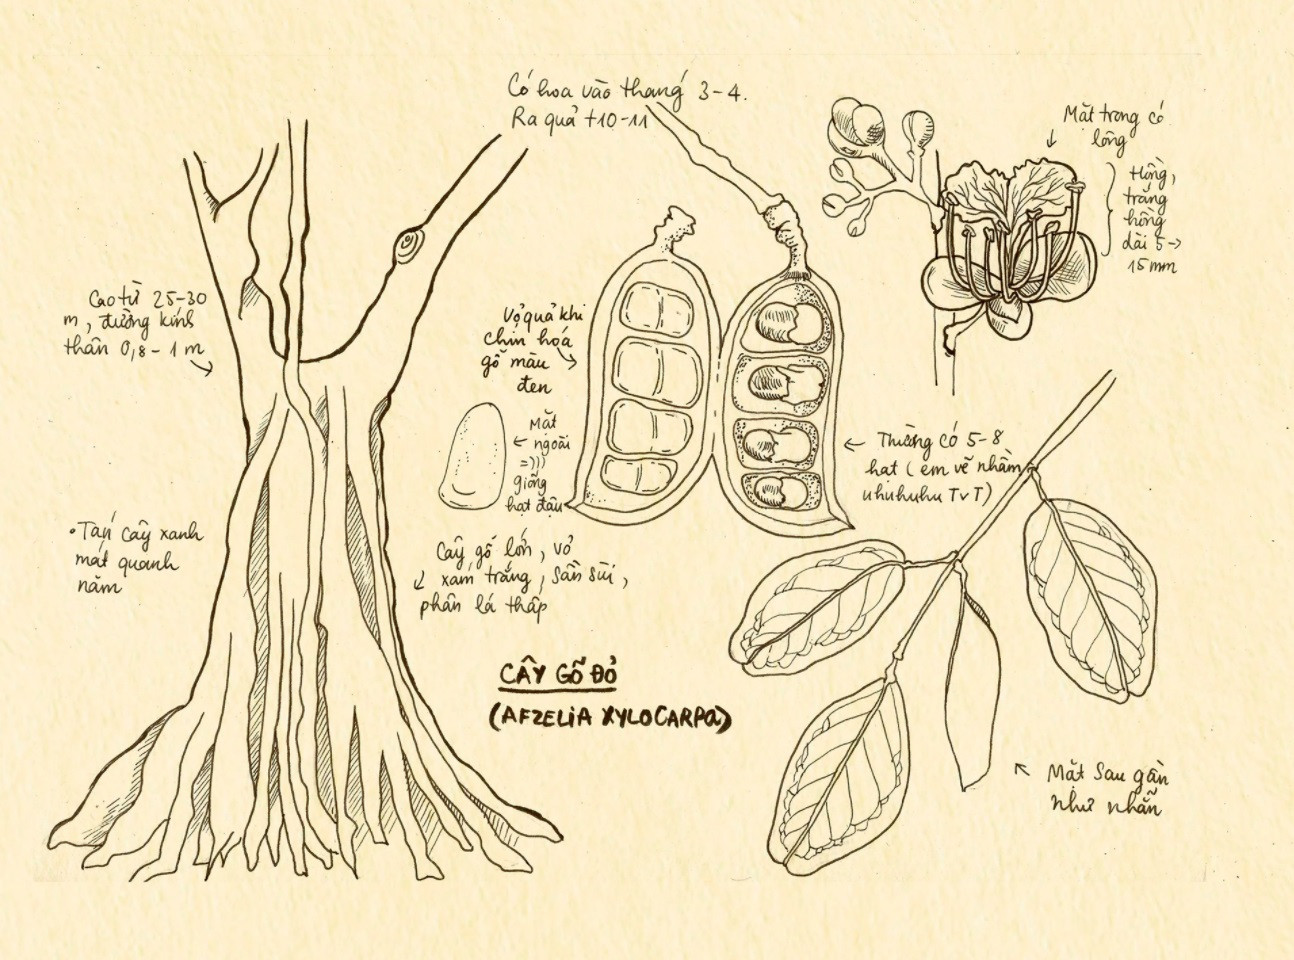 Có hoa vào tháng 3-4.
Ra quả t10-11
Mặt trong có
lông
Hồng,
trắng
hồng
dài 5->
15mm
Cao từ 25-30
m, đường kính
thân 0,8-1 m
Vỏ quả khi
chín hoá
gỗ màu
đen
Mặt
ngoài
=)))
giống
hạt đậu
Thường có 5-8
hạt ( em vẽ nhầm
uhuhuhu TvT)
• Tán cây xanh
mát quanh
năm
Cây gỗ lớn, vỏ
xám trắng, sần sùi,
phân lá thấp
CÂY GỖ ĐỎ
(AFZELIA XYLOCARPA)
Mặt sau gần
như nhẵn